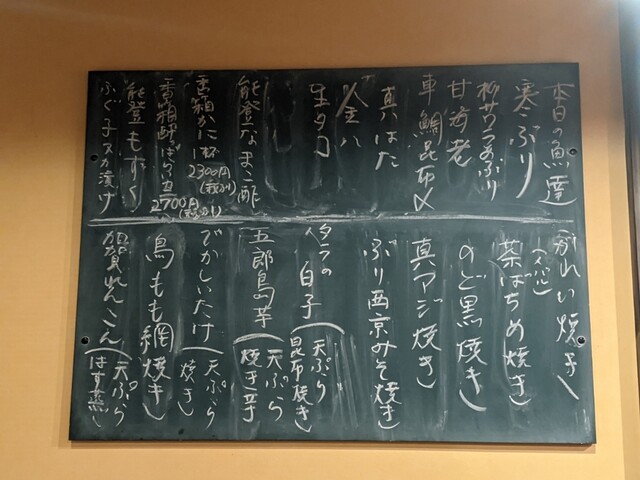 本日の魚達
寒ぶり
柳サワラあぶり
甘海老
車鯛昆布〆
真はた
金八
生タコ
能登なまこ酢
香箱かに 1杯 2300円(税別)
香箱酢 2700円(税別)
能登もずく
ふぐ子ヌカ漬け
がれい焼き
茶ばちめ焼き
のど黒焼き
真アジ焼き
ぶり西京みそ焼き
タラの白子(天ぷら 昆布焼き
五郎島芋(天ぷら 焼き芋
でかしいたけ(天ぷら 焼き
鳥もも網焼き
加賀れんこん(天ぷら はす蒸し